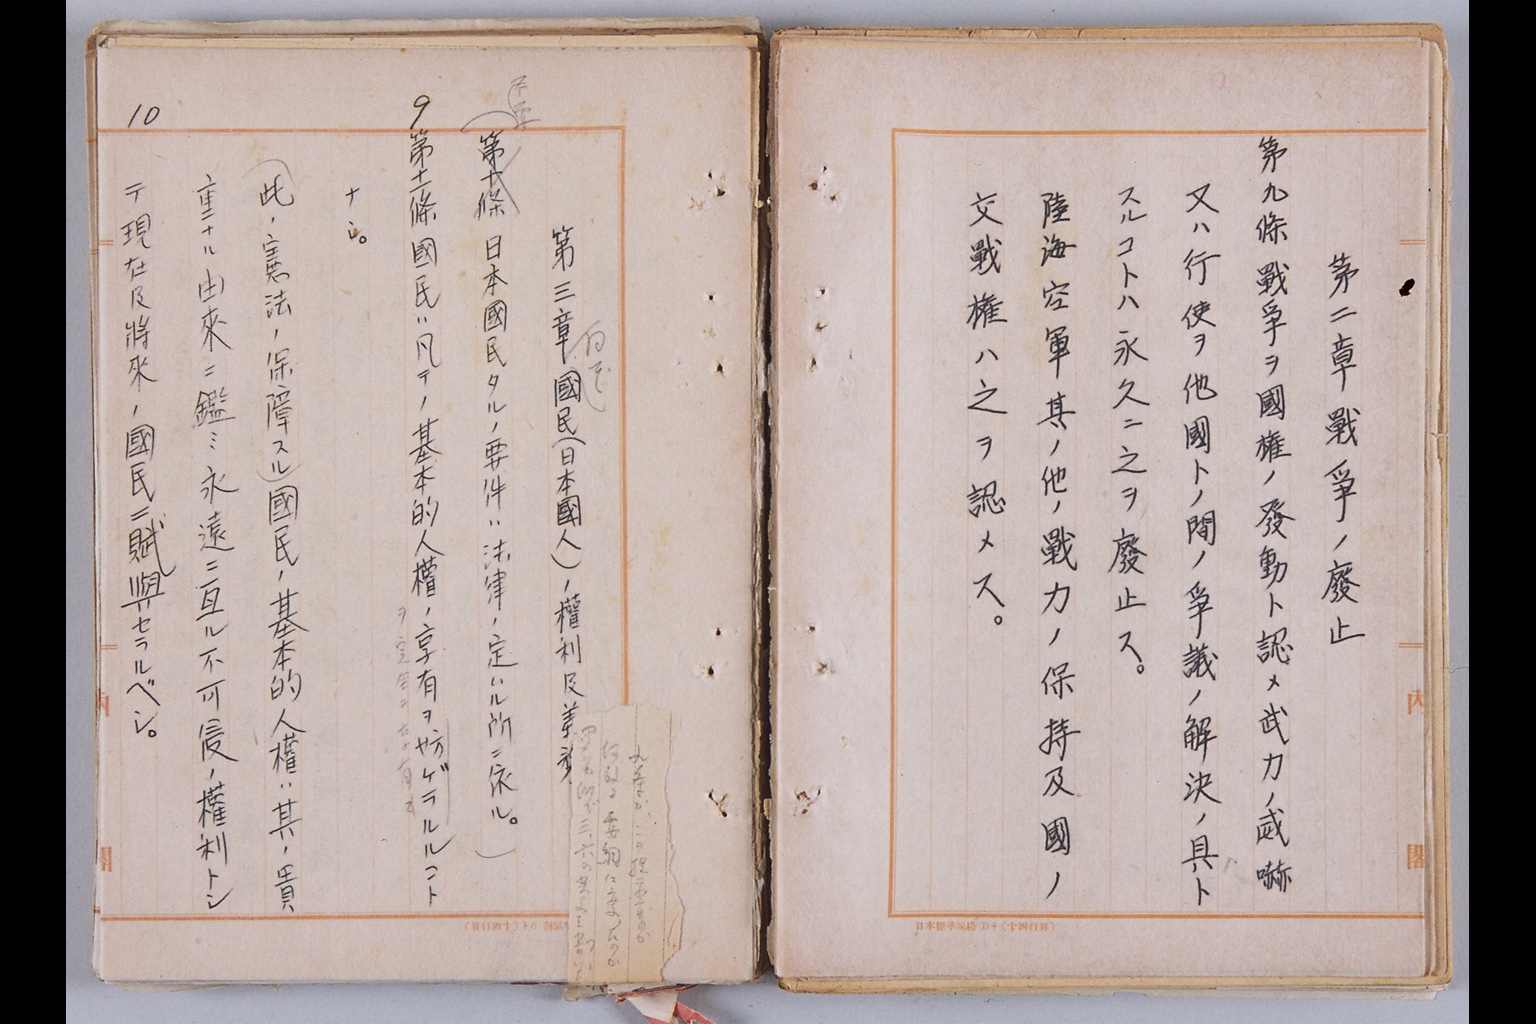 第二章 戰爭ノ廢止
第九條 戰爭ヲ國權ノ發動ト認メ武力ノ威嚇
又ハ行使ヲ他國トノ間ノ爭議ノ解決ノ具ト
スルコトハ永久ニ之ヲ廢止ス。
陸海空軍其ノ他ノ戰力ノ保持及國ノ
交戰權ハ之ヲ認メス。
日本標準規格B4(十四行罫)
内閣
第三章 國民(日本國人)ノ權利及義務
(第十條 日本國民タルノ要件ハ法律ノ定ムル所ニ依ル。)
9
第十一條 國民ハ凡テノ基本的人權ノ享有ヲ妨ゲラルルコト
ナシ。
(此ノ憲法ノ保障スル)國民ノ基本的人權ハ其ノ貴
重ナル由來ニ鑑ミ永遠ニ亘ル不可侵ノ權利トシ
10
テ現在及將來ノ國民ニ賦與セラルベシ。
内閣